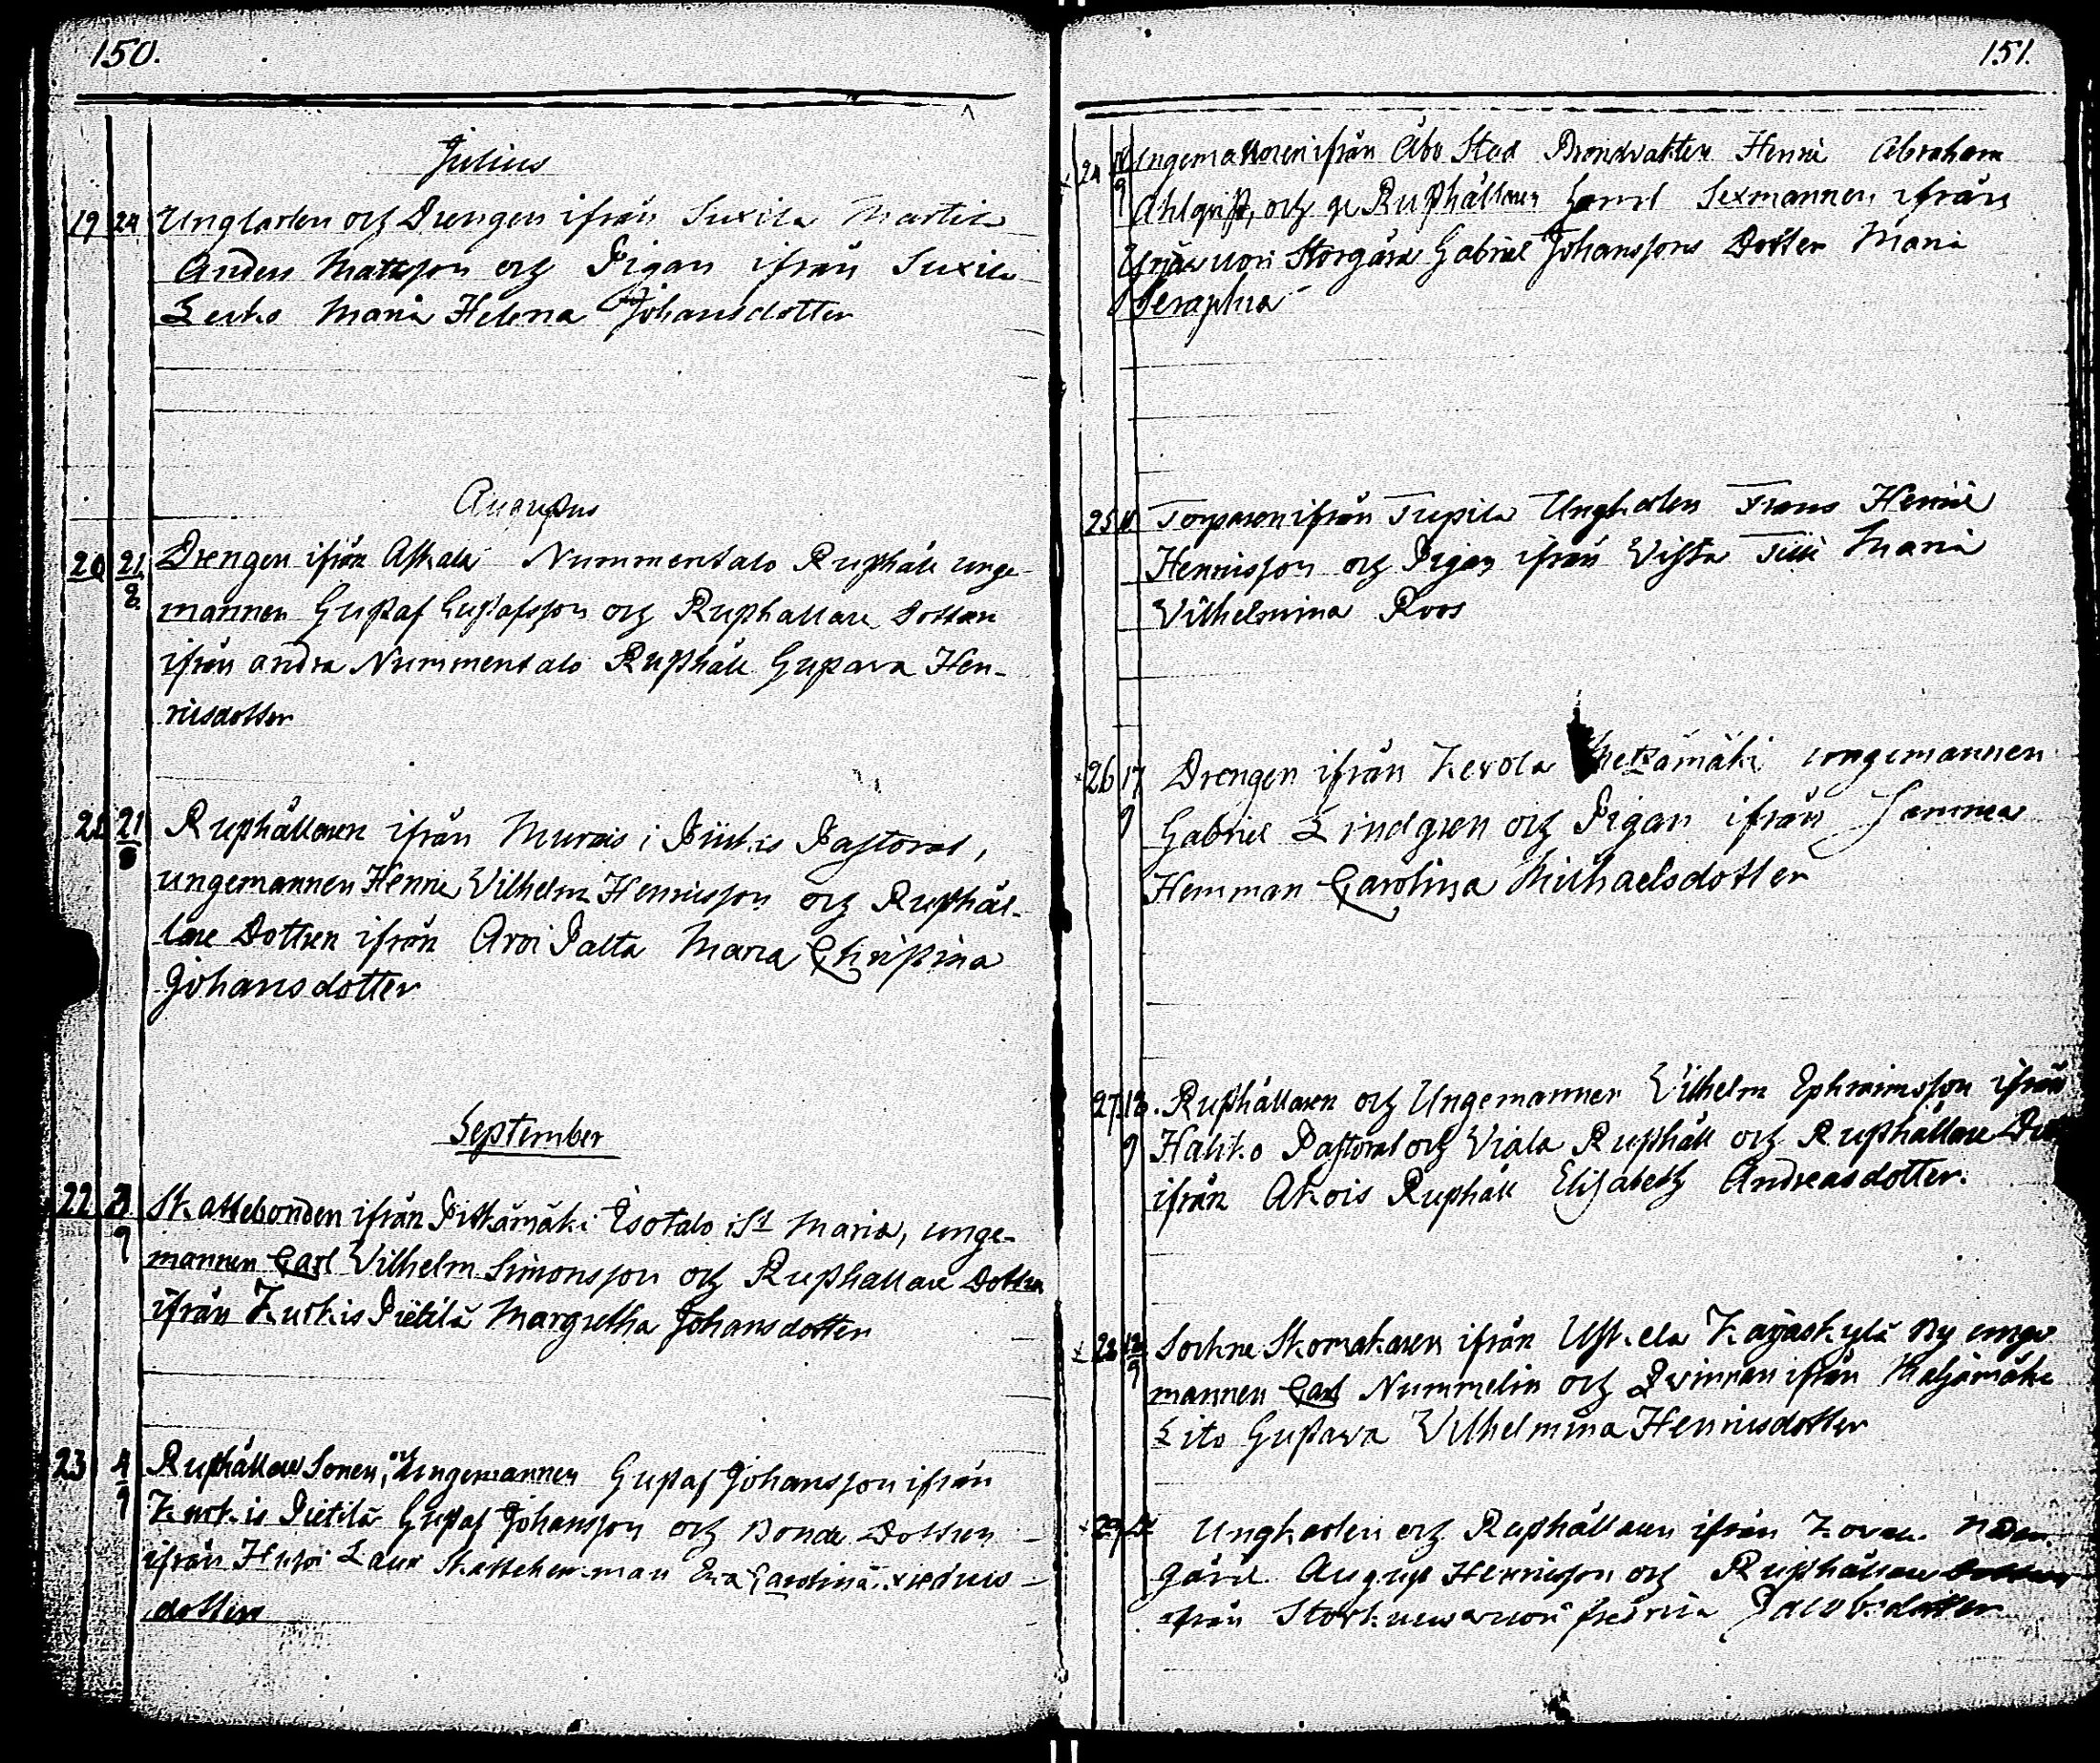 150.
Julius
19 24 Ungkarlen och Drengen ifrån Suxila Martila
Anders Mattsson och Pigan ifrån Suxila
Maria Helena Johansdotter
Augustus
20 21/8 Drengen ifrån Askala Nummentalo Rusthåll unge-
mannen Gustaf Gustafsson och Rusthållare Dottren
ifrån andra Nummentalo Rusthåll Gustava Hen-
ricsdotter
21 21/8 Rusthållaren ifrån i Piikis Pastorat,
ungemannen Henric Vilhelm Henricsson och Rusthål-
lare Dottren ifrån Arvi Palta Maria Christina
Johansdotter
September
22 9 Skattebonden ifrån Isotalo i St Maria, unge-
mannen Carl Vilhelm Simonsson och Rusthållare Dottren
ifrån Kurkis Pietilä Margretha Johansdotter
23 4/9 Rusthållare Sonen, Ungemannen Gustaf Johansson ifrån
Kurkis Pietilä Gustaf Johansson och Bonde Dottren
ifrån Lauri Skattehemman Eva Carolina
dotter
151.
24 9 ifrån Åbo Stad Brandvakten Henric Abraham
Ahlqvist, och Rusthållaren Sexmannen ifrån
Storgård Gabriel Johanssons Dotter Maria
Seraphia
25 11 Torparen ifrån Ungkarlen Frans Henric
Henricsson och Pigan ifrån Vista Tilli Maria
Vilhelmina Roos
26 17/9 Drengen ifrån Kevola ungemannen
Gabriel Lindgren och Pigan ifrån
Hemman Carolina Michaelsdotter
27 18/9 Rusthållaren och Ungemannen Vilhelm Ephraimsson ifrån
Haliko Pastorat och Viala Rusthåll och Rusthållare
ifrån Akois Rusthåll Elisabeth Andreasdotter.
28 9 Sockne Skomakaren ifrån Uskela by unge
mannen Carl Nummelin och Qvinnan ifrån
Gustava Vilhelmina Henricsdotter
29 Ungkarlen och Rusthållaren ifrån
gård August Henricsson och Rusthållare Dottren
ifrån Jacobsdotter